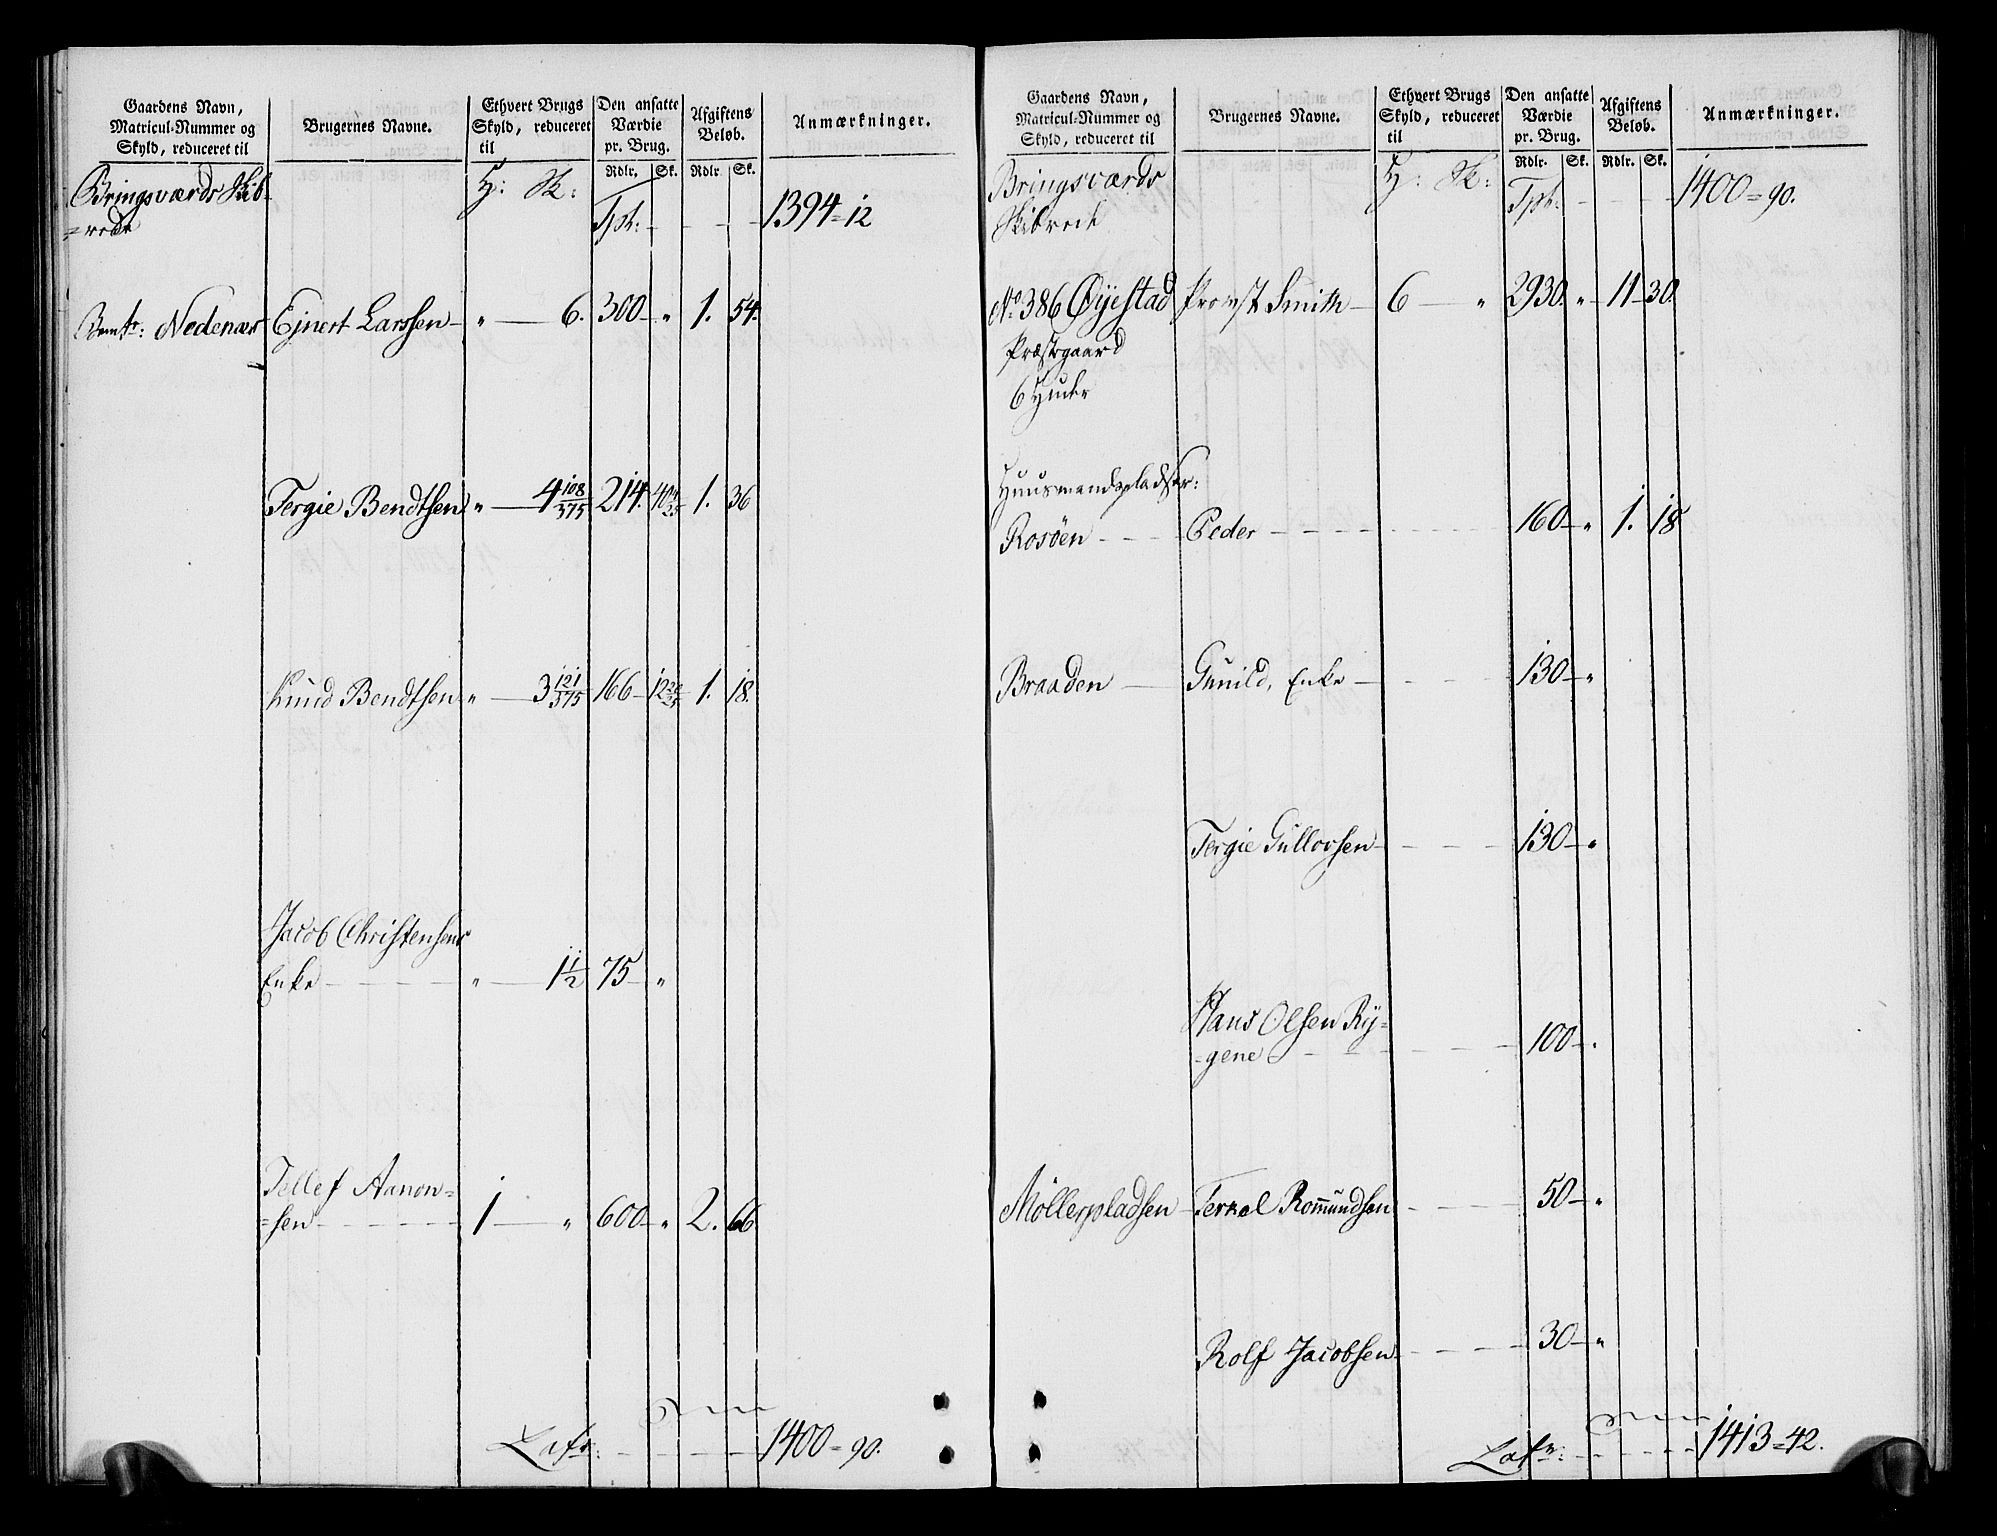 Gaardens Navn, Matricul-Nummer og Skyld, reduceret til
Brugernes Navne.
Ethvert Brugs Skyld, reduceret til
Den ansatte Værdie pr. Brug.
Afgiftens Beløb.
Anmærkninger.
Rdlr. Sk. Rdlr Sk.
Bringsværds Skib-
=rede
H: Sk:
Tpt: - - - 1394=12
Nedenæs Ejnert Larssen - " - 6. 300 - " 1. 54.
Tergie Bendtsen " - 4 108/375 214. 40 1. 36
Knud Bendtsen " - 3 121/375 166 - 12 1. 18.
Jacob Christensens
Enke - - - " - 1 1/2 75 - "
Tellef Aanon=
=sen - - - 1 - " 600 - " 2. 66
Latr: - - - 1400=90.
Gaardens Navn, Matricul-Nummer og Skyld, reduceret til
Brugernes Navne.
Ethvert Brugs Skyld, reduceret til
Den ansatte Værdie pr. Brug.
Afgiftens Beløb.
Anmærkninger.
Rdlr. Sk. Rdlr. Sk.
Bringsværds
Skibrede
H: Sk:
Tpt: - - - 1400=90.
No 386 Øÿestad Provst Smith - 6 - " 2930. " 11 - 30.
Præstegaard
6 Huder
Huusmandspladser:
Rosöen - - - Peder - - - 160 - " 1. 18
Braaden - Gunild, Enke - - - 130 - "
Tergie Gullovsen - - - 130 - "
Hans Olsen Rÿ=
=gene - - - 100 - "
Möllerpladsen - Terkel Romundsen - - - 50 - "
Rolf Jacobsen - - - 30 - "
Latr: - - - 1413=42.